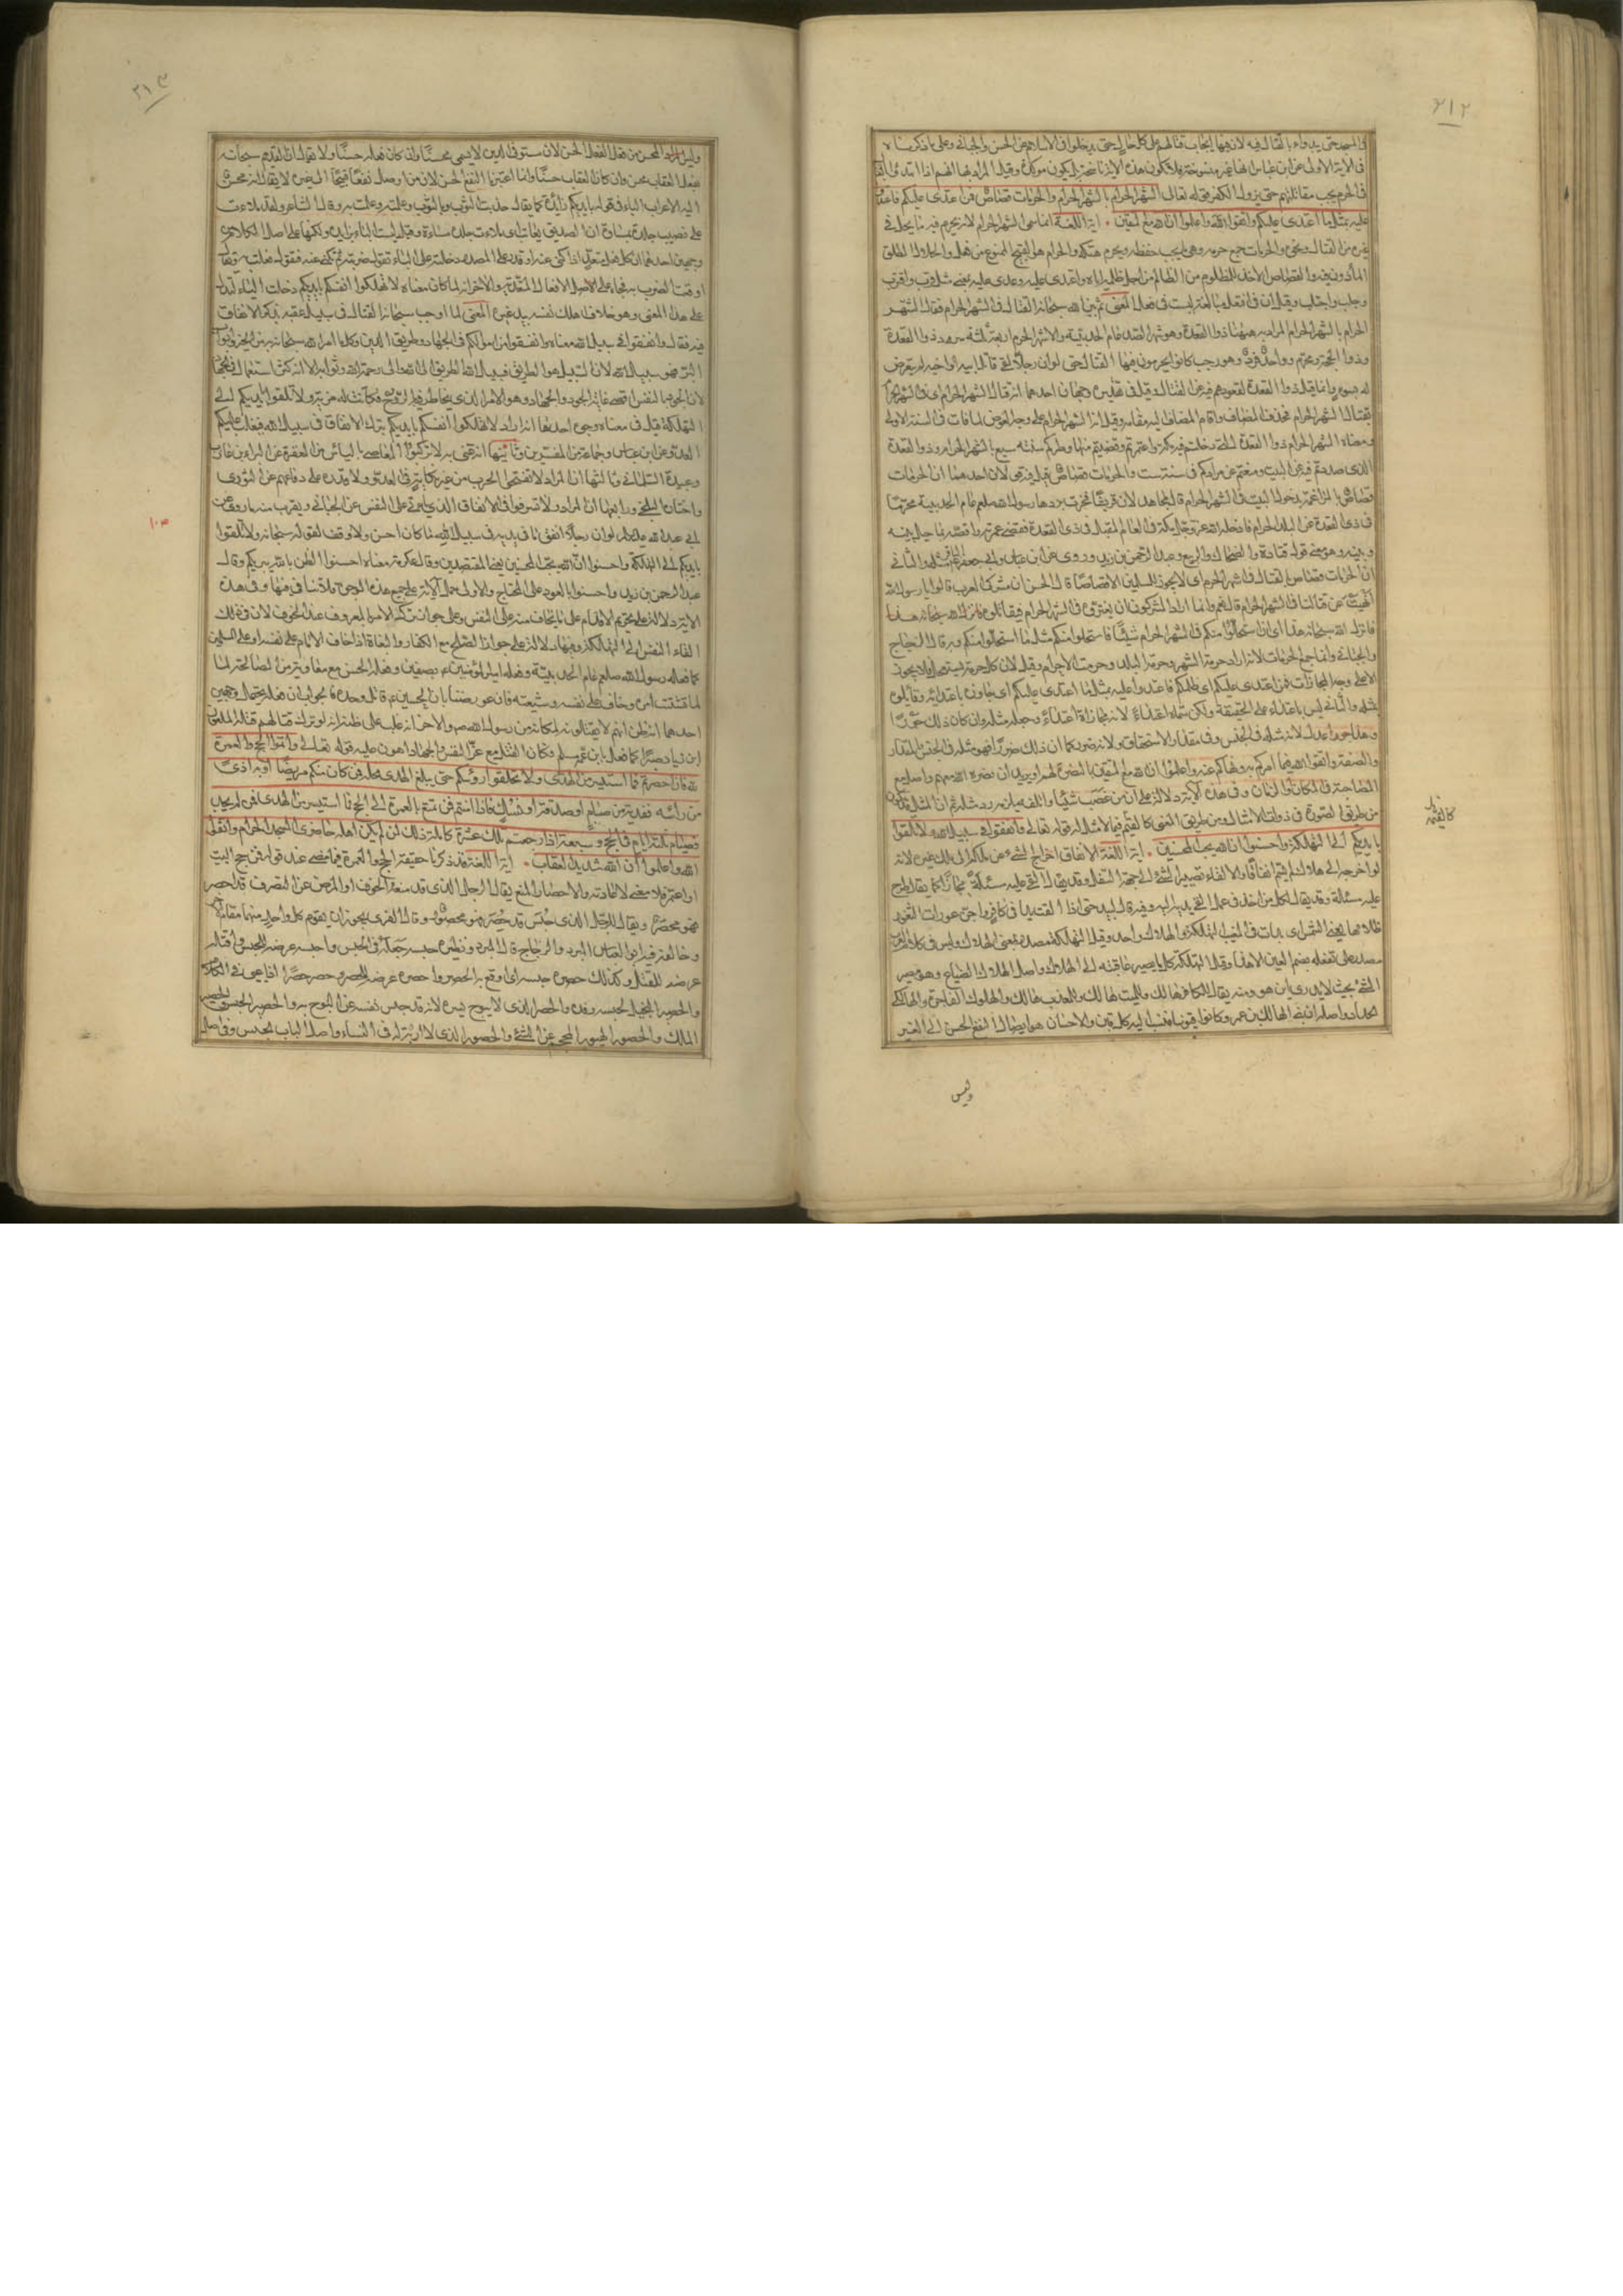 ٢١٢
في الآية الاولى عن ابن عباس انها غير منسوخة فلا تكون هذه الآية ناسخة بل يكون مؤكدة وقيل المراد بها انهم اذا ابتدئوا بالقتال
في الحرم يجب مقاتلتهم حتى يزول الكفر قوله تعالى الشهر الحرام بالشهر الحرام والحرمات قصاص فمن اعتدى عليكم فاعتدوا
عليه بمثل ما اعتدى عليكم واتقوا الله واعلموا ان الله مع المتقين اية اللغة انما سمي الشهر الحرام لانه يحرم فيه ما يحل في
غيره من القتال ونحوه والحرمات جمع حرمة وهي ما يجب حفظه ويحرم هتكه والحرام هو القبيح الممنوع من فعله والحلال المطلق
المأذون فيه والقصاص الاخذ للمظلوم من الظالم من اجل ظلمه اياه واعتدى عليه وعدى عليه بمعنى مثل قرب واقترب
وجلب واجتلب وقيل ان في افتعل مبالغة ليست في فعل المعنى ثم بين الله سبحانه القتال في الشهر الحرام فقال الشهر
الحرام بالشهر الحرام المراد به ههنا ذو القعدة وهو شهر الصد عام الحديبية والاشهر الحرم اربعة ثلثة سرد ذو القعدة
وذو الحجة ومحرم وواحد فرد وهو رجب كانوا يحرمون فيها القتال حتى لو ان رجلا لقي قاتل ابيه او اخيه لم يتعرض
له بسوء وانما قيل ذو القعدة لقعودهم فيه عن القتال وقيل في تقديره وجهان احدهما انه قتال الشهر الحرام اي في الشهر الحرام
بقتال الشهر الحرام فحذف المضاف واقام المضاف اليه مقامه وقيل انه الشهر الحرام على وجه العوض لما فات في السنة الاولى
ومعناه الشهر الحرام ذو القعدة الذي دخلتم فيه مكة واعتمرتم وقضيتم منها وطركم سنة سبع بالشهر الحرام ذو القعدة
الذي صددتم فيه عن البيت ومنعتم عن مرادكم في سنة ست والحرمات قصاص قيل فيه قولان احدهما ان الحرمات
قصاص بالمراغمة بدخول البيت في الشهر الحرام قال مجاهد لان قريشا فخرت بردها رسول الله صلعم عام الحديبية محرما
في ذي القعدة عن البلد الحرام فادخله الله عز وجل مكة في العام المقبل في ذي القعدة فقضى عمرته واقصه بما حيل بينه
وبينه وهو معنى قول قتادة والضحاك والربيع وعبد الرحمن بن زيد وروي عن ابن عباس وابي جعفر مثله والثاني
ان الحرمات قصاص بالقتال في الشهر الحرام اي لا يجوز للمسلمين الا قصاصا قال الحسن ان مشركي العرب قالوا يا رسول الله
انهيت عن قتالنا في الشهر الحرام قال نعم وانما اراد المشركون ان يغتروه في الشهر الحرام فيقاتلوه فانزل الله سبحانه هذا
والجبائي وانما جمع الحرمات لانه اراد حرمة الشهر وحرمة البلد وحرمة الاحرام وقيل لان كل حرمة تستحل فلا يجوز
الا على وجه المجازات فمن اعتدى عليكم اي ظلمكم فاعتدوا عليه بمثل ما اعتدى عليكم اي جازوه باعتدائه وقابلوه
بمثله والثاني ليس باعتداء على الحقيقة ولكن سماه اعتداء لانه مجازاة اعتداء وجعله مثله وان كان ذلك جورا
وهذا عدلا لانه مثله في الجنس وفي مقدار الاستحقاق ولانه ضرر كما ان ذلك ضرر فهو مثله في الجنس والمقدار
والصفة واتقوا الله فيما امركم به ونهاكم عنه واعلموا ان الله مع المتقين بالنصرة لهم او يريد ان نصرة الله معهم واصل مع
المصاحبة في المكان او الزمان وفي هذه الآية دلالة على ان من غصب شيئا واتلفه يلزمه رد مثله ثم ان المثل قد يكون
من طريق الصورة في ذوات الامثال ومن طريق المعنى كالقيم فيما لا مثل له قوله تعالى وانفقوا في سبيل الله ولا تلقوا
بايديكم الى التهلكة واحسنوا ان الله يحب المحسنين اية اللغة الانفاق اخراج الشيء عن ملكه الى ملك غيره لانه
لو اخرجه الى هلاك لم يتم انفاقا والالقاء تصيير الشيء الى جهة السفل وقد يقال القى عليه مسئلة مجازا كما يقال طرح
عليه مسئلة وقد يقال لكل من اخذ في عمل القى يديه اليه وفيه قال لبيد حتى اذا القت يدا في كافر واجن عورات الثغور
ظلامها يعني الشمس اي بدات في المغيب التهلكة والهلاك واحد وقيل التهلكة مصدر بمعنى الهلاك وليس في كلام العرب
مصدر على تفعلة بضم العين الا هذا وقيل التهلكة كل ما يصير عاقبته الى الهلاك واصل الهلاك الضياع وهو مصير
الشيء بحيث لا يدرى اين هو ومنه يقال للكافر هالك وللميت هالك وللمعذب هالك والهلوك الفاجرة والهالكي
الحداد واصله ان بني الهالك بن عمرو كانوا قيونا فنسب اليه كل قين والاحسان هو ايصال النفع الحسن الى الغير
وليس
٢١٣
وليس المحسن من فعل الفعل الحسن لان مستوفي الدين لا يسمى محسنا وان كان فعله حسنا ولا يقال ان القديم سبحانه
بفعل العقاب محسن وان كان العقاب حسنا وانما اعتبرنا النفع الحسن لان من اوصل نفعا قبيحا الى غيره لا يقال انه محسن
اليه الاعراب الباء في قوله بايديكم زائدة كما يقال جذبت الثوب وبالثوب وعلمته وعلمت به وقال الشاعر ولقد ملاءت
على نصيب جلده بمساءة ان الصديق يعاتب اي ملاءت جلده مساءة وقيل ليست الباء بزايدة ولكنها على اصل الكلام
على هذا المعنى وهو خلاف اهلك نفسه بيد غيره المعنى لما اوجب سبحانه القتال في سبيله عقبه بذكر الانفاق
فيه فقال وانفقوا في سبيل الله معناه وانفقوا من اموالكم في الجهاد وطريق الدين وكل ما امر الله سبحانه به من الخير وابواب
البر فهو سبيل الله لان السبيل هو الطريق فسبيل الله الطريق الى الله والى رحمة الله وثوابه الا انه كثر استعماله في الجهاد
ولا تلقوا بايديكم الى
التهلكة قيل في معناه وجوه احدها انه اراد لا تهلكوا انفسكم بايديكم بترك الانفاق في سبيل الله فيغلب عليكم
العدو عن ابن عباس وجماعة من المفسرين وثانيها انه عنى به لا تركبوا المعاصي بالياس من المغفرة عن البراء بن عازب
وعبيدة السلماني وثالثها ان المراد لا تقتحموا الحرب من غير نكاية في العدو ولا قدرة على دفاعهم عن الثوري
واختاره البلخي ورابعها ان المراد ولا تسرفوا في الانفاق الذي ياتي على النفس عن الجبائي ويقرب منه ما روي عن
ابي عبد الله لو ان رجلا انفق ما في يديه في سبيل الله ما كان احسن ولا وفق لقوله سبحانه ولا تلقوا
بايديكم الى التهلكة واحسنوا ان الله يحب المحسنين يعني المقتصدين وقال عكرمة معناه احسنوا الظن بالله يبر بكم وقال
عبد الرحمن بن زيد واحسنوا بالعود على المحتاج والاولى حمل الآية على جميع هذه الوجوه ولا تنافي فيها وفي هذه
الآية دلالة على تحريم الاقدام على ما يخاف منه على النفس وعلى جواز ترك الامر بالمعروف عند الخوف لان في ذلك
القاء النفس الى التهلكة وفيها دلالة على جواز الصلح مع الكفار والبغاة اذا خاف الامام على نفسه او على المسلمين
كما فعله رسول الله صلعم عام الحديبية وفعله امير المؤمنين بصفين وفعله الحسن مع معاوية من المصالحة لما
تشتت امره وخاف على نفسه وشيعته فان عورضنا بان الحسين قاتل وحده فالجواب ان فعله يحتمل وجهين
احدهما انه ظن انهم لا يقتلونه لمكانه من رسول الله ص والاخر انه غلب على ظنه انه لو ترك قتالهم قتله الملعون
ابن زياد صبرا كما فعل بابن عمه مسلم فكان القتل مع عز النفس والجهاد اهون عليه قوله تعالى واتموا الحج والعمرة
لله فان احصرتم فما استيسر من الهدى ولا تحلقوا رؤسكم حتى يبلغ الهدى محله فمن كان منكم مريضا او به اذى
من رأسه ففدية من صيام او صدقة او نسك فاذا امنتم فمن تمتع بالعمرة الى الحج فما استيسر من الهدى فمن لم يجد
فصيام ثلثة ايام في الحج وسبعة اذا رجعتم تلك عشرة كاملة ذلك لمن لم يكن اهله حاضري المسجد الحرام واتقوا
الله واعلموا ان الله شديد العقاب اية اللغة قد ذكرنا حقيقة الحج والعمرة فيما مضى عند قوله فمن حج البيت
او اعتمر فلا معنى لاعادته والاحصار المنع يقال للرجل الذي قد منعه الخوف او المرض عن التصرف قد احصر
فهو محصر ويقال للرجل الذي حبس قد حصر فهو محصور وقال الفرى يجوز ان يقوم كل واحد منهما مقام الآخر
وخالفه فيه ابو العباس المبرد والزجاج قال المبرد ونظيره حبسه جعله في الحبس واحبسه عرضه للحبس واقتله
عرضه للقتل وكذلك حصره حبسه اي اوقع به الحصر واحصره عرضه للحصر وحصر حصرا اذا عيي في الكلام
والحصير البخيل لحبسه رفده والحصر الذي لا يبوح بسره لانه قد حبس نفسه عن البوح به والحصير الحبس والحصير
الملك والحصور الهيوب المحجم عن الشيء والحصور الذي لا اربة له في النساء واصل الباب الحبس وفي اصل